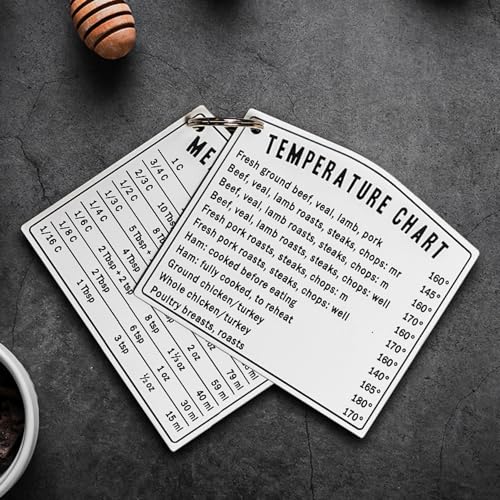 TEMPERATURE CHART
Fresh ground beef, veal, lamb, pork 160°
Beef, veal, lamb roasts, steaks, chops: mr 145°
Beef, veal, lamb roasts, steaks, chops: m 160°
Beef, veal, lamb roasts, steaks, chops: well 170°
Fresh pork roasts, steaks, chops: m 160°
Fresh pork roasts, steaks, chops: well 170°
Ham: cooked before eating 160°
Ham: fully cooked, to reheat 140°
Ground chicken/turkey 165°
Whole chicken/turkey 180°
Poultry breasts, roasts 170°
ME
1 C
3/4 C
2/3 C 10 Tbsp
1/2 C 8 Tbsp
1/3 C 5 Tbsp 79 ml
1/4 C 4 Tbsp 2 oz 59 ml
1/6 C 2 Tbsp + 2 8 tsp 1⅓ oz 40 ml
1/8 C 2 Tbsp 6 tsp 1 oz 30 ml
1/16 C 1 Tbsp 3 tsp ½ oz 15 ml